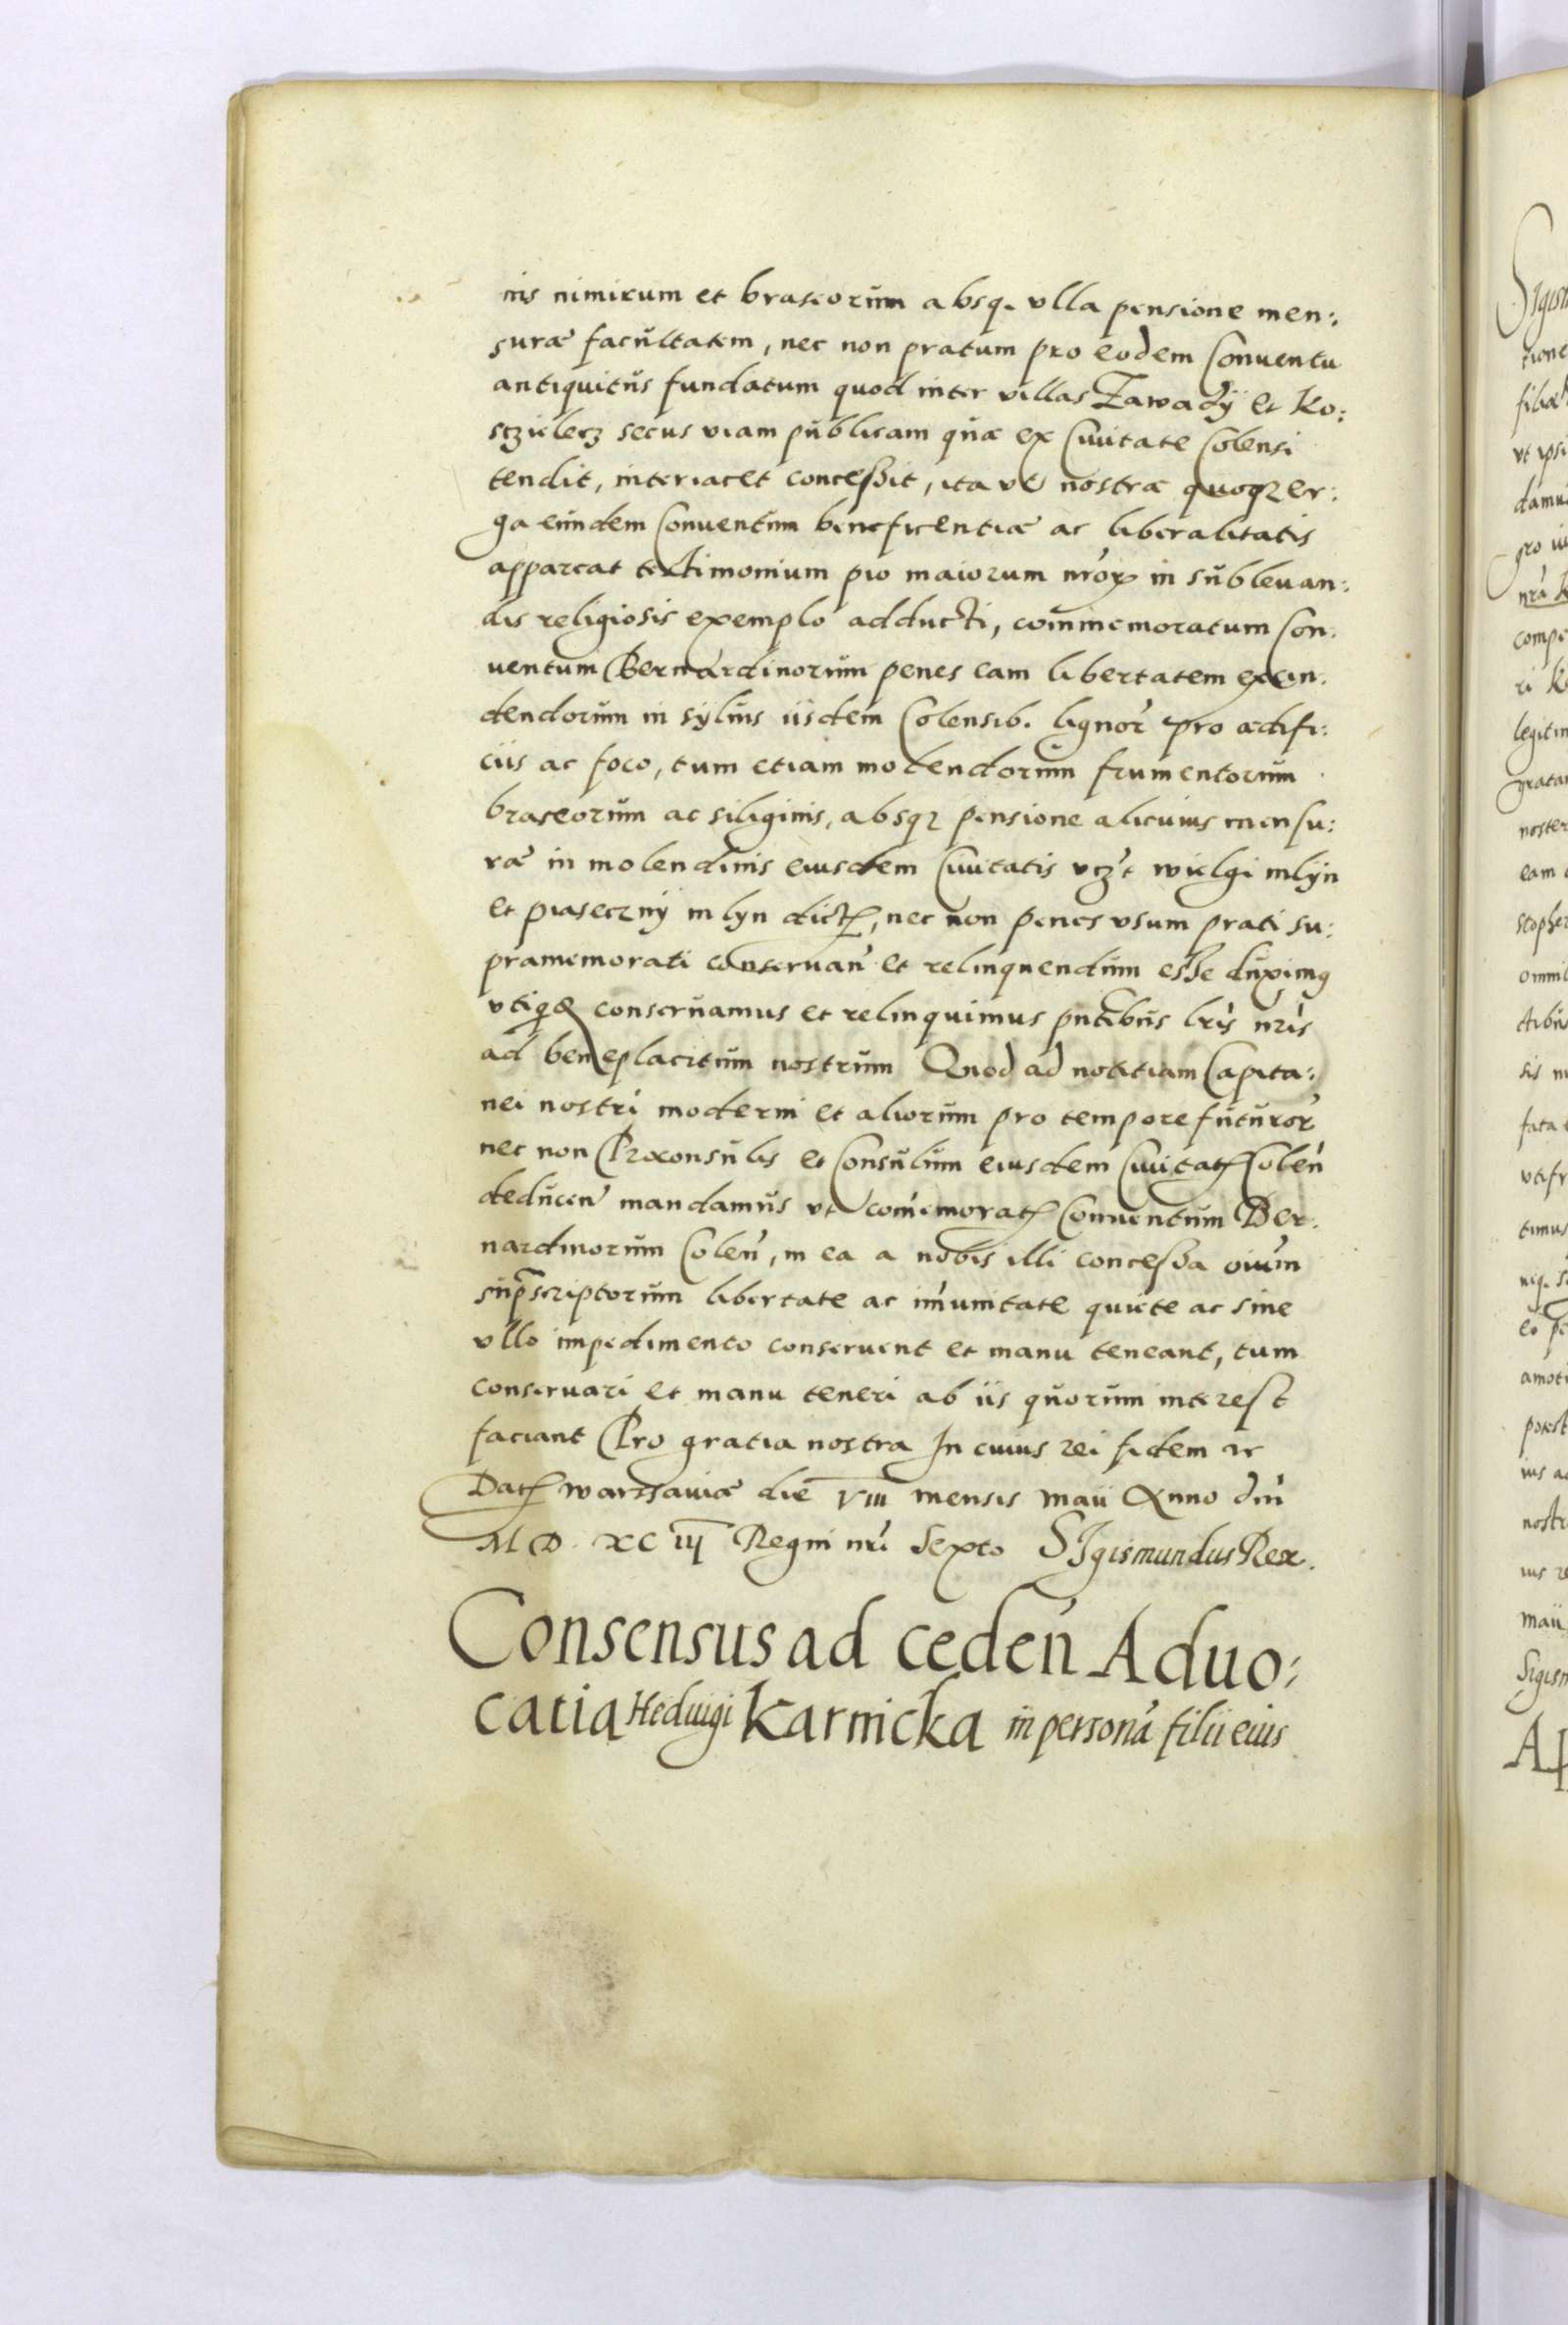 nis nimirum et braseorum absq. vlla pensione men:
suræ facultatem, nec non pratum pro eodem Conuentu
antiquitus fundatum quod inter villas Zawadÿ et Ko:
sczielecz secus viam publicam quæ ex Ciuitate Colensi
tendit, interiacet concessit, ita vt nostræ quoqz er:
ga eundem Conuentum beneficentiæ ac liberalitatis
appareat testimonium pio maiorum nror in subleuan:
dis religiosis exemplo adducti, commemoratum Con:
uentum Bernardinorum penes eam libertatem excin:
dendorum in syluis iisdem Colensib. lignor pro ædifi:
ciis ac foco, tum etiam molendorum frumentorum
braseorum ac siliginis, absqz pensione alicuius mensu:
ræ in molendinis eiusdem Ciuitatis vczt wielgi mlÿn
et piasecznÿ mlyn dict, nec non penes vsum prati su:
pramemorati conseruan et relinquendum esse duximg
vtiqz conseruamus et relinquimus pntibus lris nris
ad beneplacitum nostrum Quod ad notitiam Capita:
nei nostri moderni et aliorum pro tempore futuror
nec non Proconsulis et Consulum eiusdem Ciuitat Colen
deducen mandamus vt comemorat Conuentum Ber:
nardinorum Colen, in ea a nobis illi concessa oium
supscriptorum libertate ac imunitate quiete ac sine
vllo impedimento conseruent et manu teneant, tum
conseruari et manu teneri ab iis quorum interest
faciant Pro gratia nostra In cuius rei fidem ac
Dat warssauiæ die VIII mensis maii Anno dni
M D XC iij Regni nri Sexto SIgismundus Rex.
Consensus ad ceden Aduo:
catia Heduigi Karnicka in persona filii eius